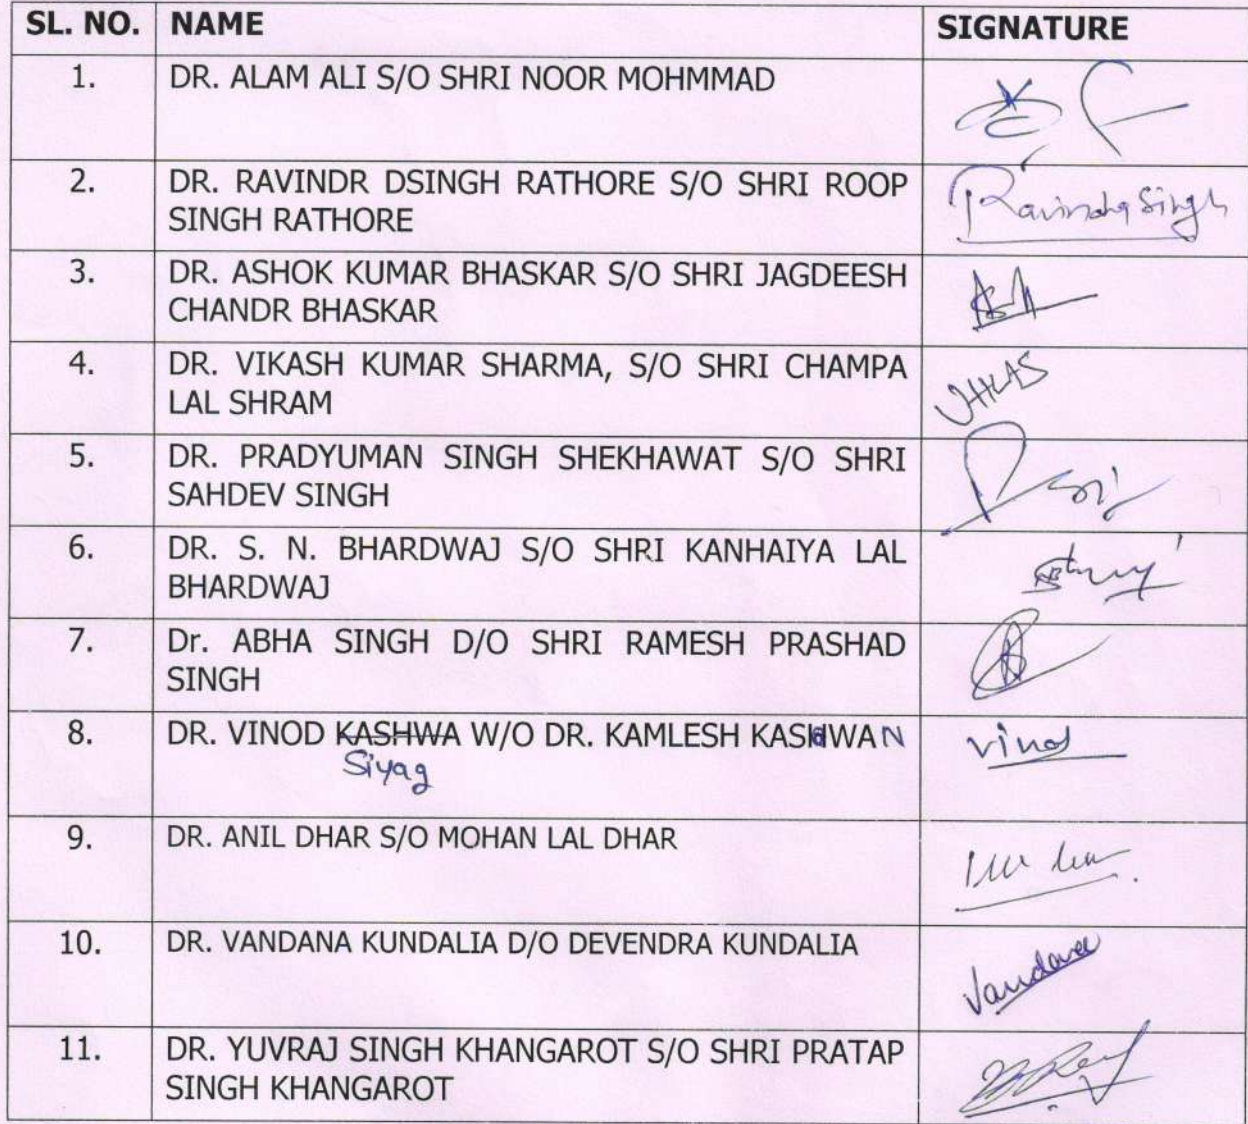 SL. NO. NAME SIGNATURE
1. DR. ALAM ALI S/O SHRI NOOR MOHMMAD
2. DR. RAVINDR DSINGH RATHORE S/O SHRI ROOP
SINGH RATHORE
Ravindra Singh
3. DR. ASHOK KUMAR BHASKAR S/O SHRI JAGDEESH
CHANDR BHASKAR
4. DR. VIKASH KUMAR SHARMA, S/O SHRI CHAMPA
LAL SHRAM
5. DR. PRADYUMAN SINGH SHEKHAWAT S/O SHRI
SAHDEV SINGH
6. DR. S. N. BHARDWAJ S/O SHRI KANHAIYA LAL
BHARDWAJ
7. Dr. ABHA SINGH D/O SHRI RAMESH PRASHAD
SINGH
8. DR. VINOD KASHWA W/O DR. KAMLESH KASWAN Vinod
Siyag
9. DR. ANIL DHAR S/O MOHAN LAL DHAR
10. DR. VANDANA KUNDALIA D/O DEVENDRA KUNDALIA
Vandana
11. DR. YUVRAJ SINGH KHANGAROT S/O SHRI PRATAP
SINGH KHANGAROT